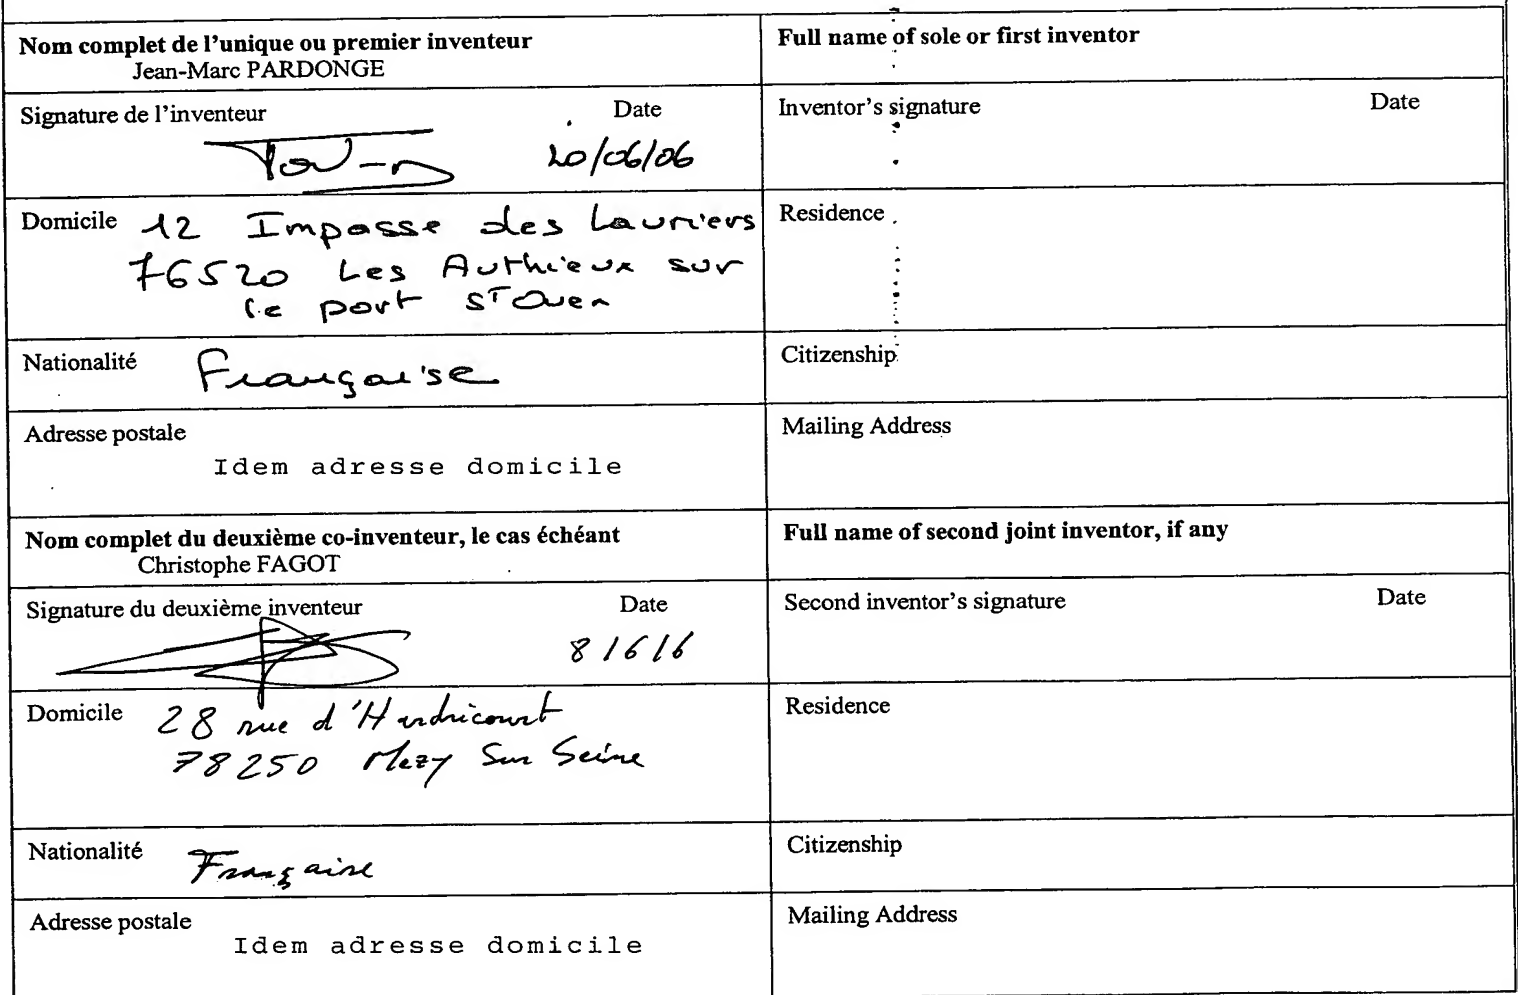 Nom complet de l'unique ou premier inventeur
Jean-Marc PARDONGE
Full name of sole or first inventor
Signature de l'inventeur Date
20/06/06
Inventor's signature Date
Domicile 12 Impasse des Lauriers
76520 Les Authieux sur
le port ST Ouen
Residence
Nationalité Française
Citizenship
Adresse postale
Idem adresse domicile
Mailing Address
Nom complet du deuxième co-inventeur, le cas échéant
Christophe FAGOT
Full name of second joint inventor, if any
Signature du deuxième inventeur Date
8/6/6
Second inventor's signature Date
Domicile 28 rue d'Hardricourt
78250 Mezy Sur Seine
Residence
Nationalité Française
Citizenship
Adresse postale
Idem adresse domicile
Mailing Address